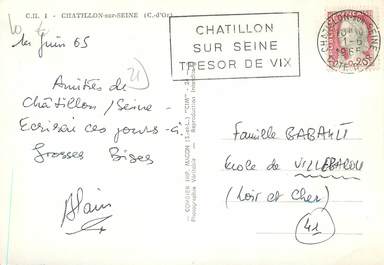 C.H. 1 - CHATILLON-sur-SEINE (C.-d'Or)
1er Juin 65
Amitiés de
Châtillon/Seine -
Ecrirai ces jours-ci
Grosses Bises
Alain
21
CHATILLON
SUR SEINE
TRESOR DE VIX
CHATILLON-SUR-SEINE
1-6
1965
COTE-D'OR
COMBIER IMP. MACON (S.-et-L.) "CIM"
Photographie Véritable - Reproduction Interdite
Famille BABAULT
Ecole de VILLEBAROU
(Loir et Cher)
41